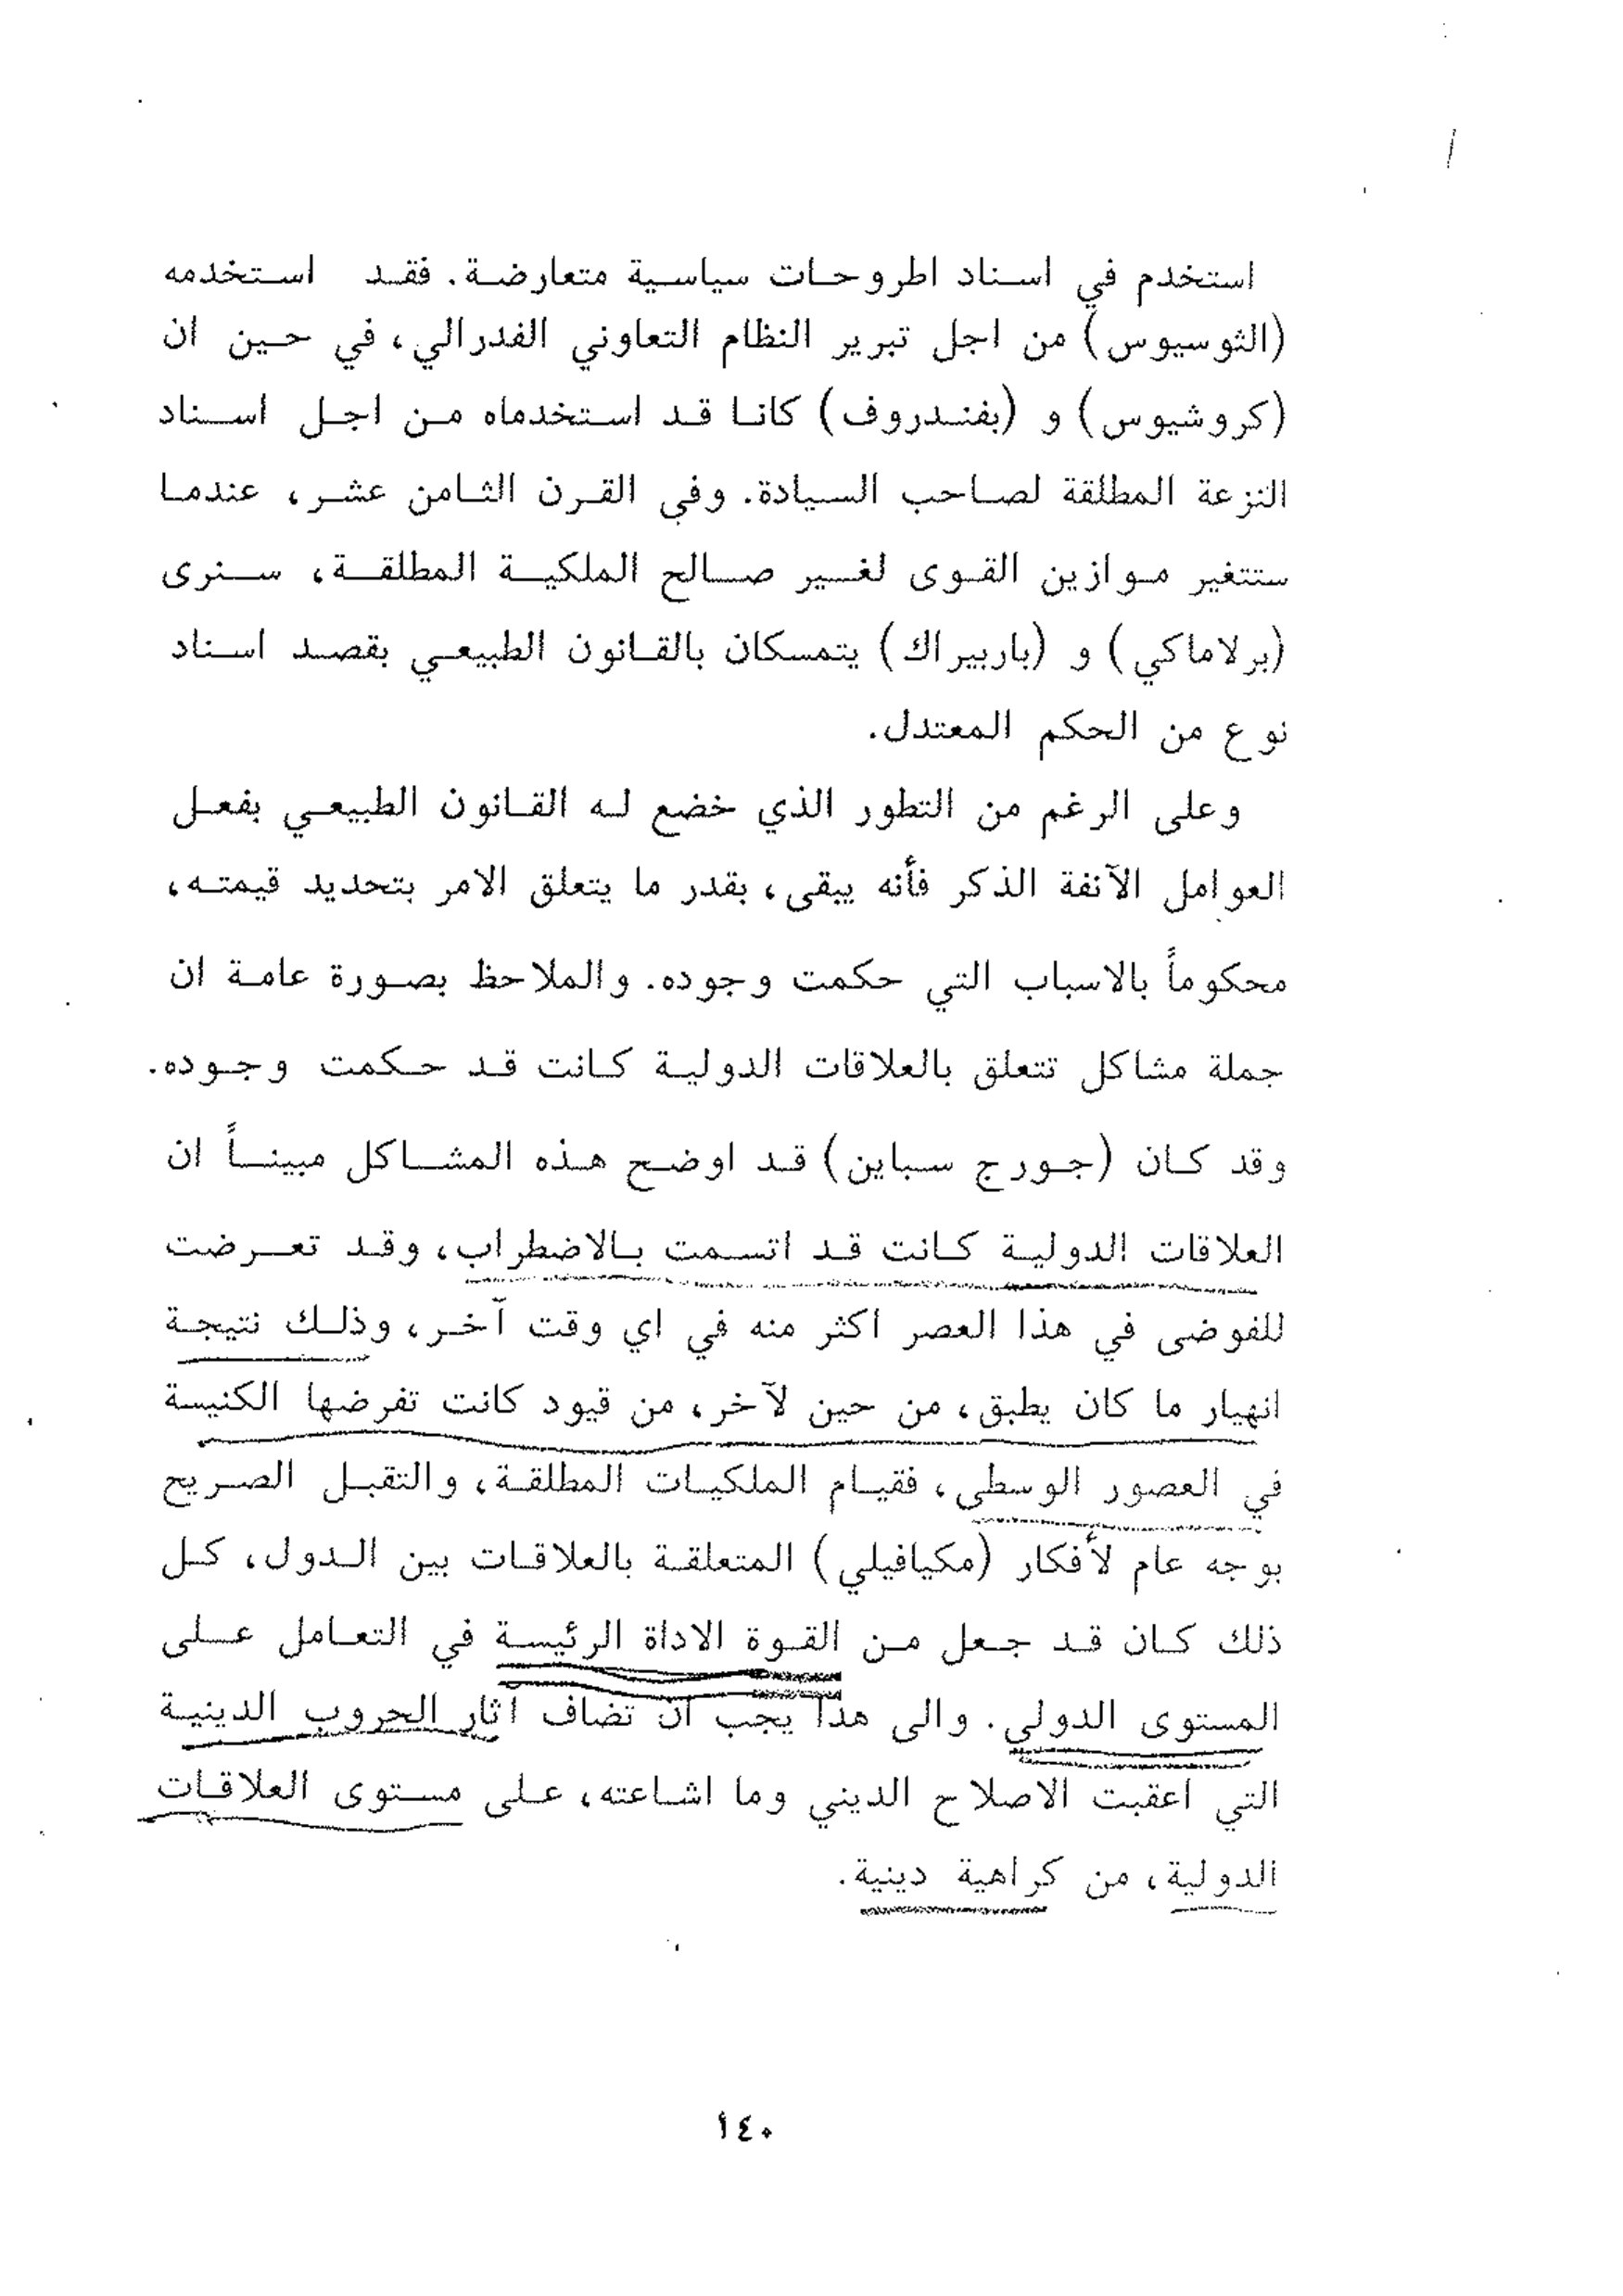 استخدم في اسناد اطروحات سياسية متعارضة. فقد استخدمه
(الثوسيوس) من اجل تبرير النظام التعاوني الفدرالي، في حين ان
(كروشيوس) و (بفندروف) كانا قد استخدماه من اجل اسناد
النزعة المطلقة لصاحب السيادة. وفي القرن الثامن عشر، عندما
ستتغير موازين القوى لغير صالح الملكية المطلقة، سنرى
(برلاماكي) و (باربيراك) يتمسكان بالقانون الطبيعي بقصد اسناد
نوع من الحكم المعتدل.
وعلى الرغم من التطور الذي خضع له القانون الطبيعي بفعل
العوامل الآنفة الذكر فأنه يبقى، بقدر ما يتعلق الامر بتحديد قيمته،
محكوماً بالاسباب التي حكمت وجوده. والملاحظ بصورة عامة ان
جملة مشاكل تتعلق بالعلاقات الدولية كانت قد حكمت وجوده.
وقد كان (جورج سباين) قد اوضح هذه المشاكل مبيناً ان
العلاقات الدولية كانت قد اتسمت بالاضطراب، وقد تعرضت
للفوضى في هذا العصر اكثر منه في اي وقت آخر، وذلك نتيجة
انهيار ما كان يطبق، من حين لآخر، من قيود كانت تفرضها الكنيسة
في العصور الوسطى، فقيام الملكيات المطلقة، والتقبل الصريح
بوجه عام لأفكار (مكيافيلي) المتعلقة بالعلاقات بين الدول، كل
ذلك كان قد جعل من القوة الاداة الرئيسة في التعامل على
المستوى الدولي. والى هذا يجب ان تضاف آثار الحروب الدينية
التي اعقبت الاصلاح الديني وما اشاعته، على مستوى العلاقات
الدولية، من كراهية دينية.
١٤٠